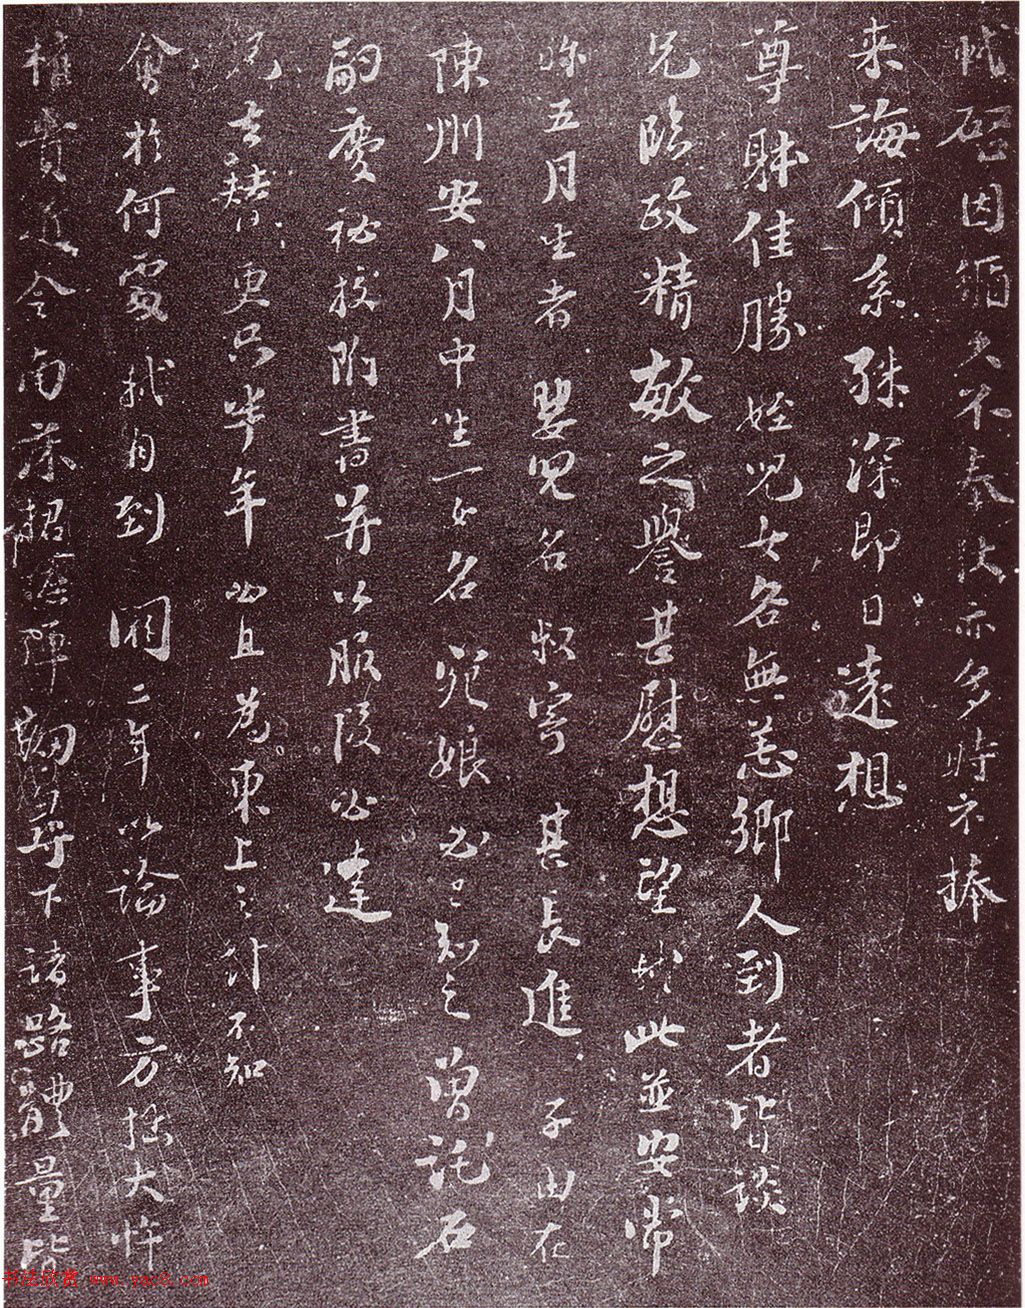 軾啓因循久不奉狀亦多時不捧
来誨傾系殊深即日遠想
尊躰佳勝姪兒女各無恙鄉人到者皆談
兄臨政精敏之譽甚慰想望軾此並安常
五月生者嬰兒名叔寄甚長進子由在
陳州安八月中生一女名宛娘必已知之曾託石
嗣慶秘校附書并以服段必達
更只半年必且為東上之計不知
會於何處軾自到闕二年以論事方拙大忤
權貴近令南床捃摭彈劾尋下諸路體量皆
书法欣赏 www.yac8.com